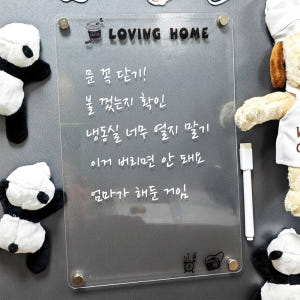 LOVING HOME
문 꼭 닫기!
불 껐는지 확인
냉동실 너무 열지 말기
이거 버리면 안 돼요
엄마가 해둔 거임